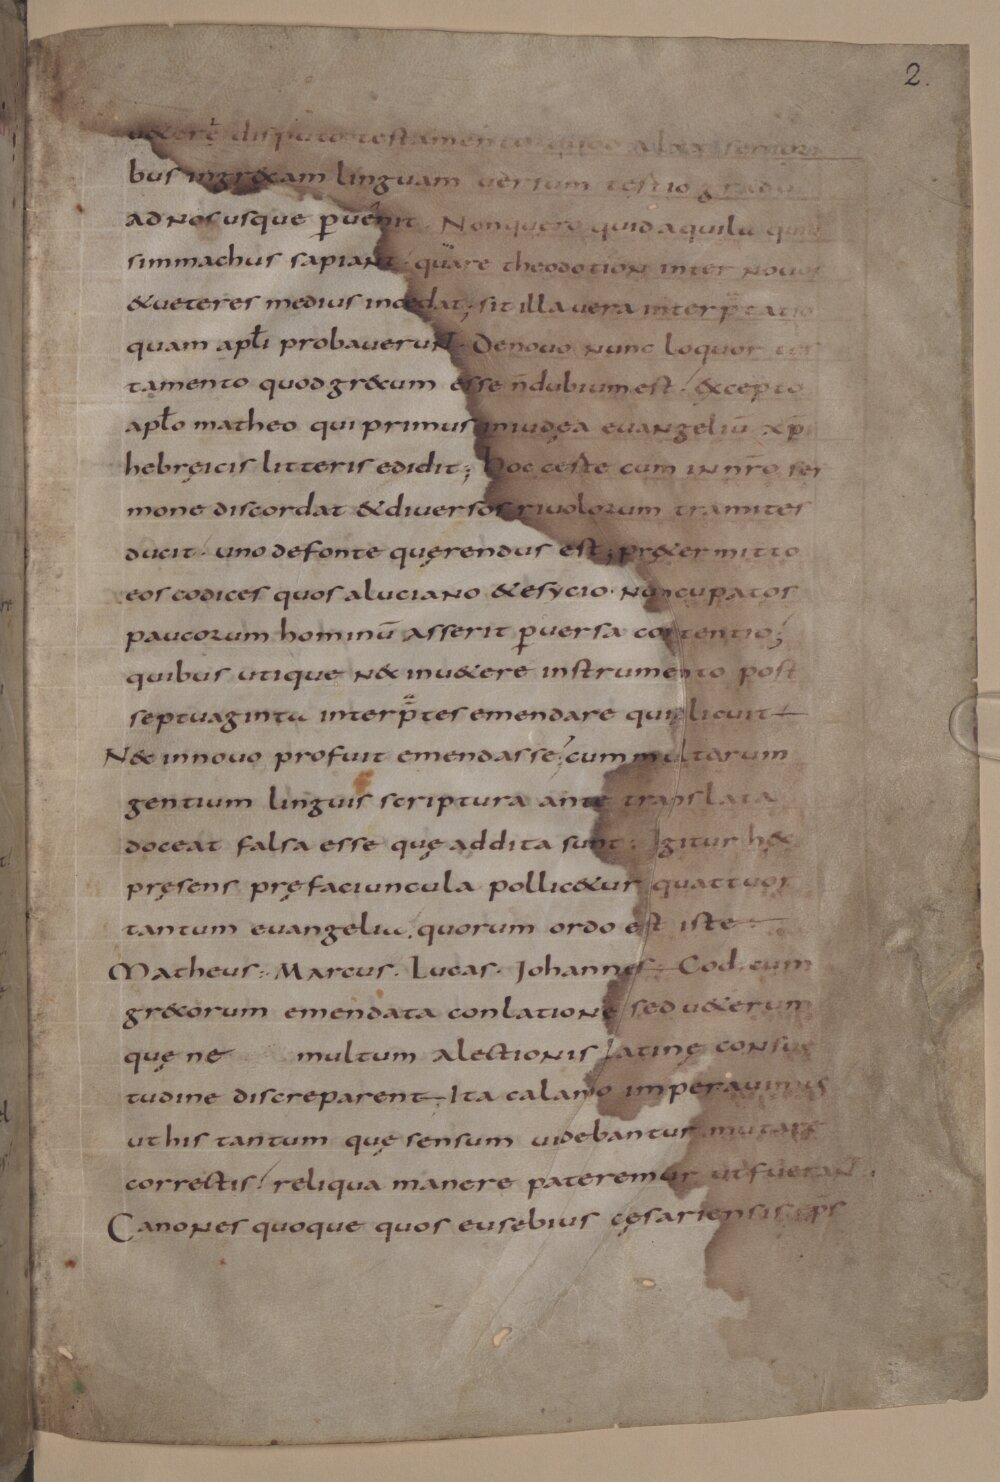 2.
u&ere disputo testamento quod a lxx seniori
bus ingr&cam linguam uersum tertio gradu
ad nos usque puenit. Non quero quid aquila quid
simmachus sapiant. quare theodotion inter nouos
&ueteres medius incedat; sit illa uera interp̄tatio
quam apłi probauerunt. Denovo nunc loquor tes
tamento quod gr&cum esse n̄ dubium est. &cepto
apło matheo qui primus iniudęa euangeliū xp̄i
hebręicis litteris edidit; Hoc certe cum in nr̄o ser
mone discordat &diuersos riuolorum tramites
ducit. uno defonte quęrendus est; pr&ermitto
eos codices quos aluciano &esycio. nuncupatos
paucorum hominū asserit puersa contentio;
quibus utique n& inu&ere instrumento post
septuaginta interp̄tes emendare quid licuit
N& innouo profuit emendasse; cum multarum
gentium linguis scriptura ante translata
doceat falsa esse quę addita sunt. Igitur h&c
pręsens pręfaciuncula pollic&ur quattuor
tantum euangelia. quorum ordo est iste
Matheus. Marcus. Lucas. Johannes. Cod. cum
gr&corum emendata conlatione sed u&erum
quę ne multum alectionis latinę consue
tudine discreparent. Ita calamo imperauimus
ut his tantum quę sensum uidebantur mutare
correctis. reliqua manere pateremur ut fuerant.
Canones quoque quos eusebius cęsariensis ep̄s